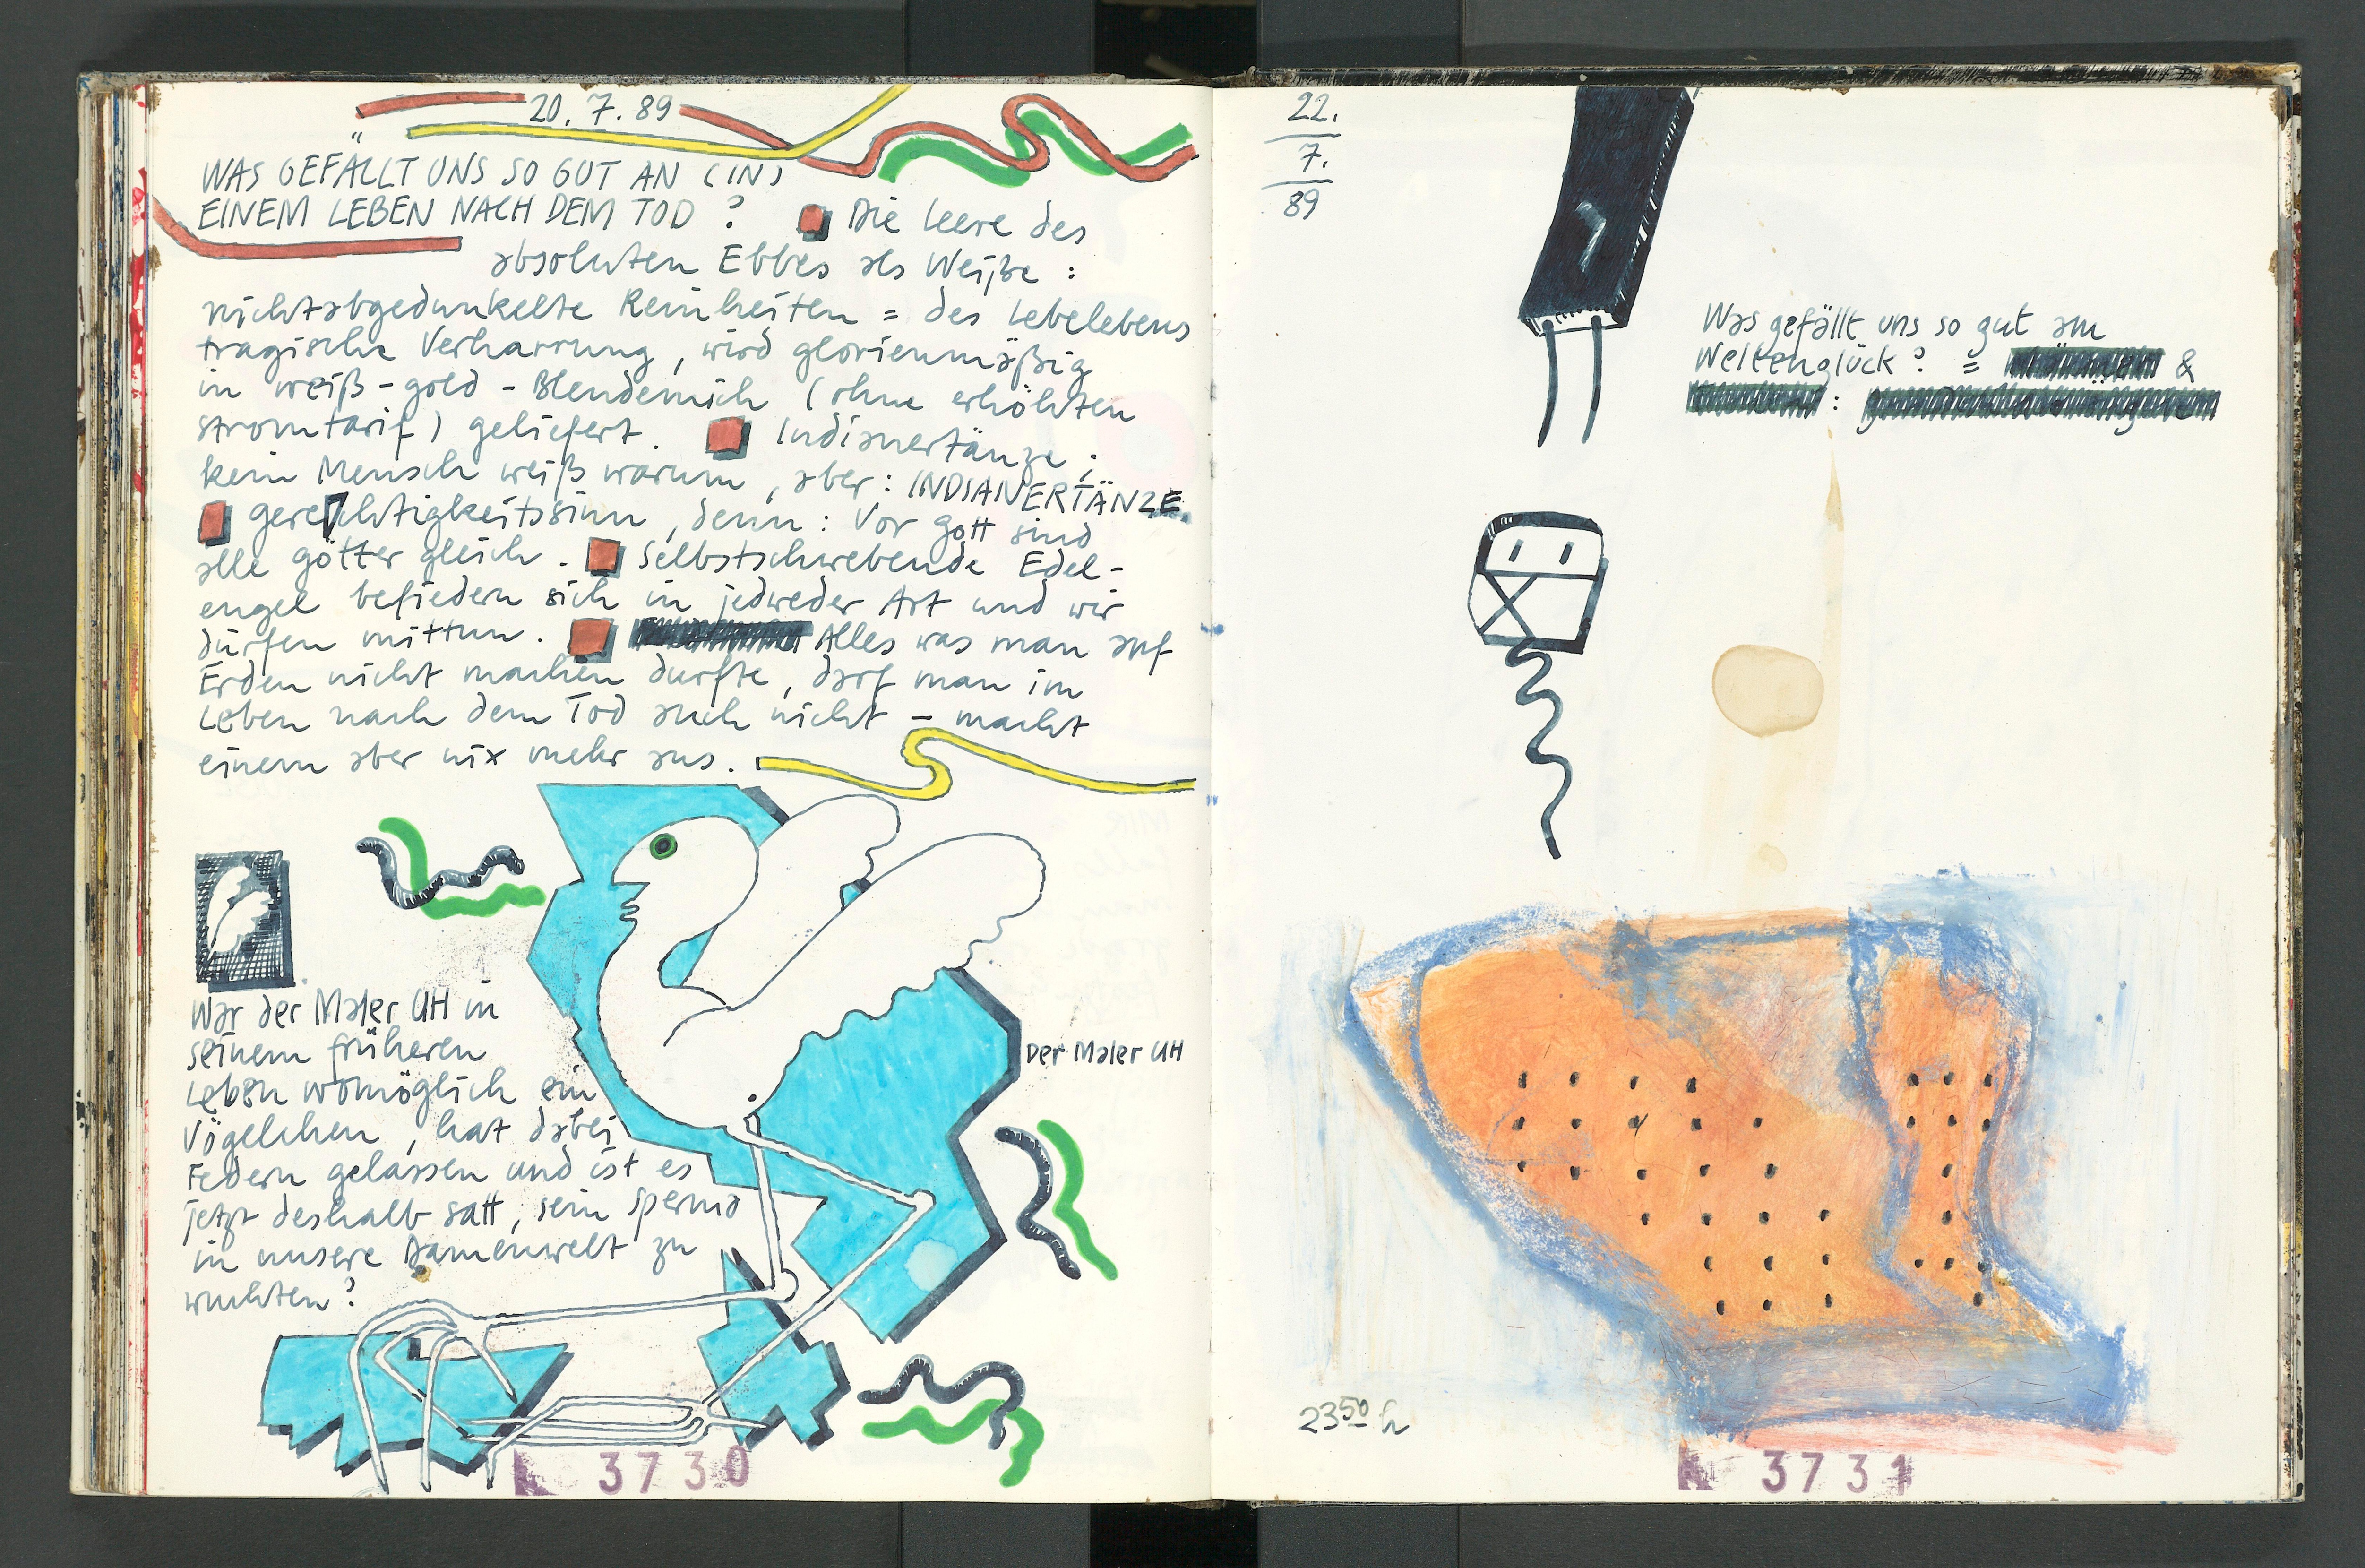 20. 7. 89
WAS GEFÄLLT UNS SO GUT AN (IN)
EINEM LEBEN NACH DEM TOD ? Die Leere des
absoluten Ebbes als Weiße :
nichtabgedunkelte Reinheiten = des Lebelebens
tragische Verharrung, wird glorienmäßig
in weiß-gold-Blendemich (ohne erhöhten
Stromtarif) geliefert. Indianertänze ;
kein Mensch weiß warum, aber: INDIANERTÄNZE.
Gerechtigkeitssinn, denn: Vor Gott sind
alle götter gleich. Selbstschwebende Edel-
engel befiedern sich in jedweder Art und wir
dürfen mittun. Alles was man auf
Erden nicht machen durfte, darf man im
Leben nach dem Tod auch nicht - macht
einem aber nix mehr aus.
War der Maler UH in
seinem früheren
Leben womöglich ein
Vögelchen, hat dabei
Federn gelassen und ist es
jetzt deshalb satt, sein Sperma
in unsere Damenwelt zu
wuchten?
Der Maler UH
3730
22.
7.
89
Was gefällt uns so gut am
Weltenglück? = &
:
23 50 h
3731